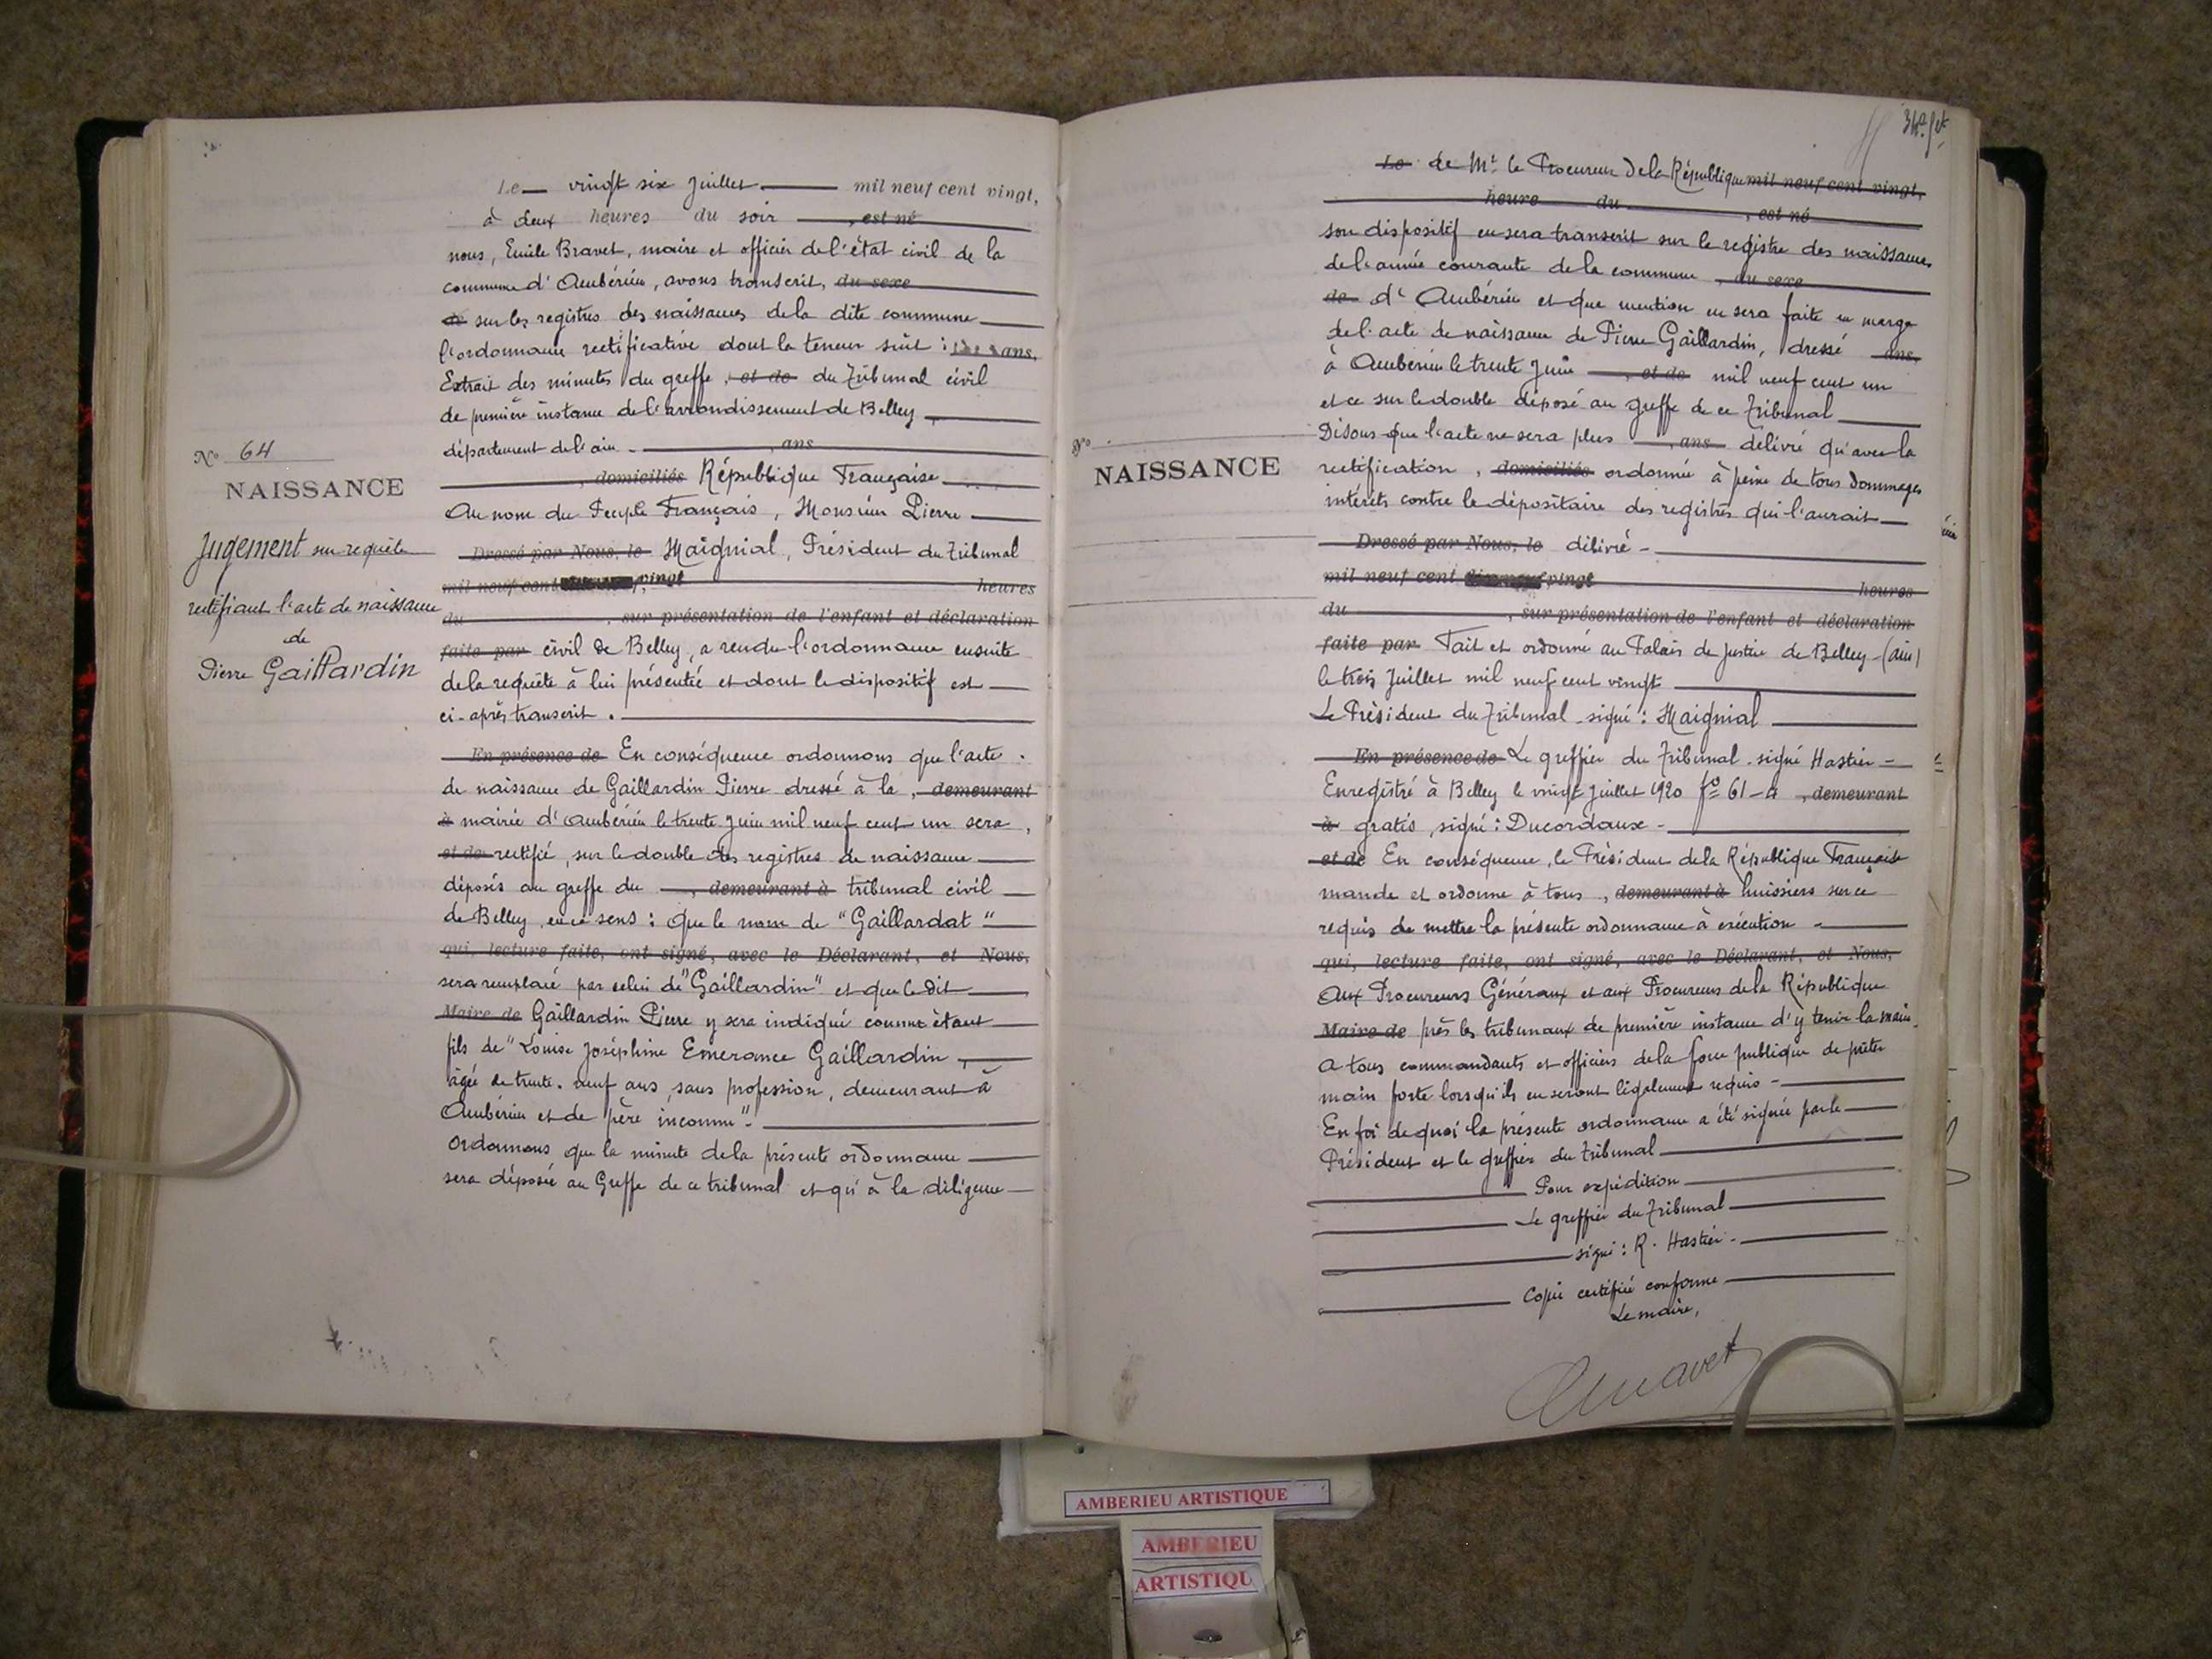 Le vingt six Juillet mil neuf cent vingt,
à deux heures du soir , est né
nous, Emile Bravet, maire et officier de l'état civil de la
commune d'Ambérieu, avons transcrit, du sexe
de sur les registres des naissances de la dite commune
l'ordonnance rectificative dont la teneur suit : ans,
Extrait des minutes du greffe , et de du Tribunal civil
de première instance de l'arrondissement de Belley
département de l'ain - , ans
N° 64
NAISSANCE
, domiciliés République Française
Au nom du Peuple Français, Monsieur Pierre
Jugement sur requête
rectifiant l'acte de naissance
de
Pierre Gaillardin
Dressé par Nous, le Maignial, Président du Tribunal
mil neuf cent vingt heures
du , sur présentation de l'enfant et déclaration
faite par civil de Belley, a rendu l'ordonnance ensuite
de la requête à lui présentée et dont le dispositif est
ci-après transcrit .
En présence de En conséquence ordonnons que l'acte
de naissance de Gaillardin Pierre dressé à la , demeurant
à mairie d'ambérieu le trente Juin mil neuf cent un sera ,
et de rectifié, sur le double des registres de naissance
déposés au greffe du , demeurant à tribunal civil
de Belley, en ce sens : que le nom de "Gaillardat"
qui, lecture faite, ont signé, avec le Déclarant, et Nous,
sera remplacé par celui de "Gaillardin" et que le dit
Maire de Gaillardin Pierre y sera indiqué comme étant
fils de "Louise Joséphine Emerance Gaillardin ,
âgée de trente-neuf ans, sans profession, demeurant à
Ambérieu et de père inconnu".
Ordonnons que la minute de la présente ordonnance
sera déposée au Greffe de ce tribunal et qu'à la diligence
Le de Mr le Procureur de la République mil neuf cent vingt,
heure du , est né
son dispositif en sera transcrit sur le registre des naissances
de l'année courante de la commune , du sexe
de d'Ambérieu et que mention en sera faite en marge
de l'acte de naissance de Pierre Gaillardin, dressé ans,
à Ambérieu le trente Juin , et de mil neuf cent un
et ce sur le double déposé au greffe de ce Tribunal
N°
NAISSANCE
Disons que l'acte ne sera plus , ans délivré qu'avec la
rectification , domiciliés ordonnée à peine de tous dommages
intérêts contre le dépositaire des registres qui l'aurait
Dressé par Nous, le délivré -
mil neuf cent vingt heures
du , sur présentation de l'enfant et déclaration
faite par Fait et ordonné au Palais de Justice de Belley - (ain)
le trois Juillet mil neuf cent vingt
Le Président du Tribunal - signé : Maignial
En présence de Le greffier du Tribunal - signé Hastier -
Enregistré à Belley le vingt Juillet 1920 f° 61 - 4 , demeurant
à gratis, signé : Ducordaux -
et de En conséquence, le Président de la République Française
mande et ordonne à tous , demeurant à huissiers sur ce
requis de mettre la présente ordonnance à exécution -
qui, lecture faite, ont signé, avec le Déclarant, et Nous,
Aux Procureurs Généraux et aux Procureurs de la République
Maire de près les tribunaux de première instance d'y tenir la main.
A tous commandants et officiers de la force publique de prêter
main forte lorsqu'ils en seront légalement requis -
En foi de quoi la présente ordonnance a été signée par le
Président et le greffier du Tribunal
Pour expédition
Le greffier du Tribunal
signé : R. Hastier -
Copie certifiée conforme
Le maire,
AMBERIEU ARTISTIQUE
AMBERIEU
ARTISTIQU